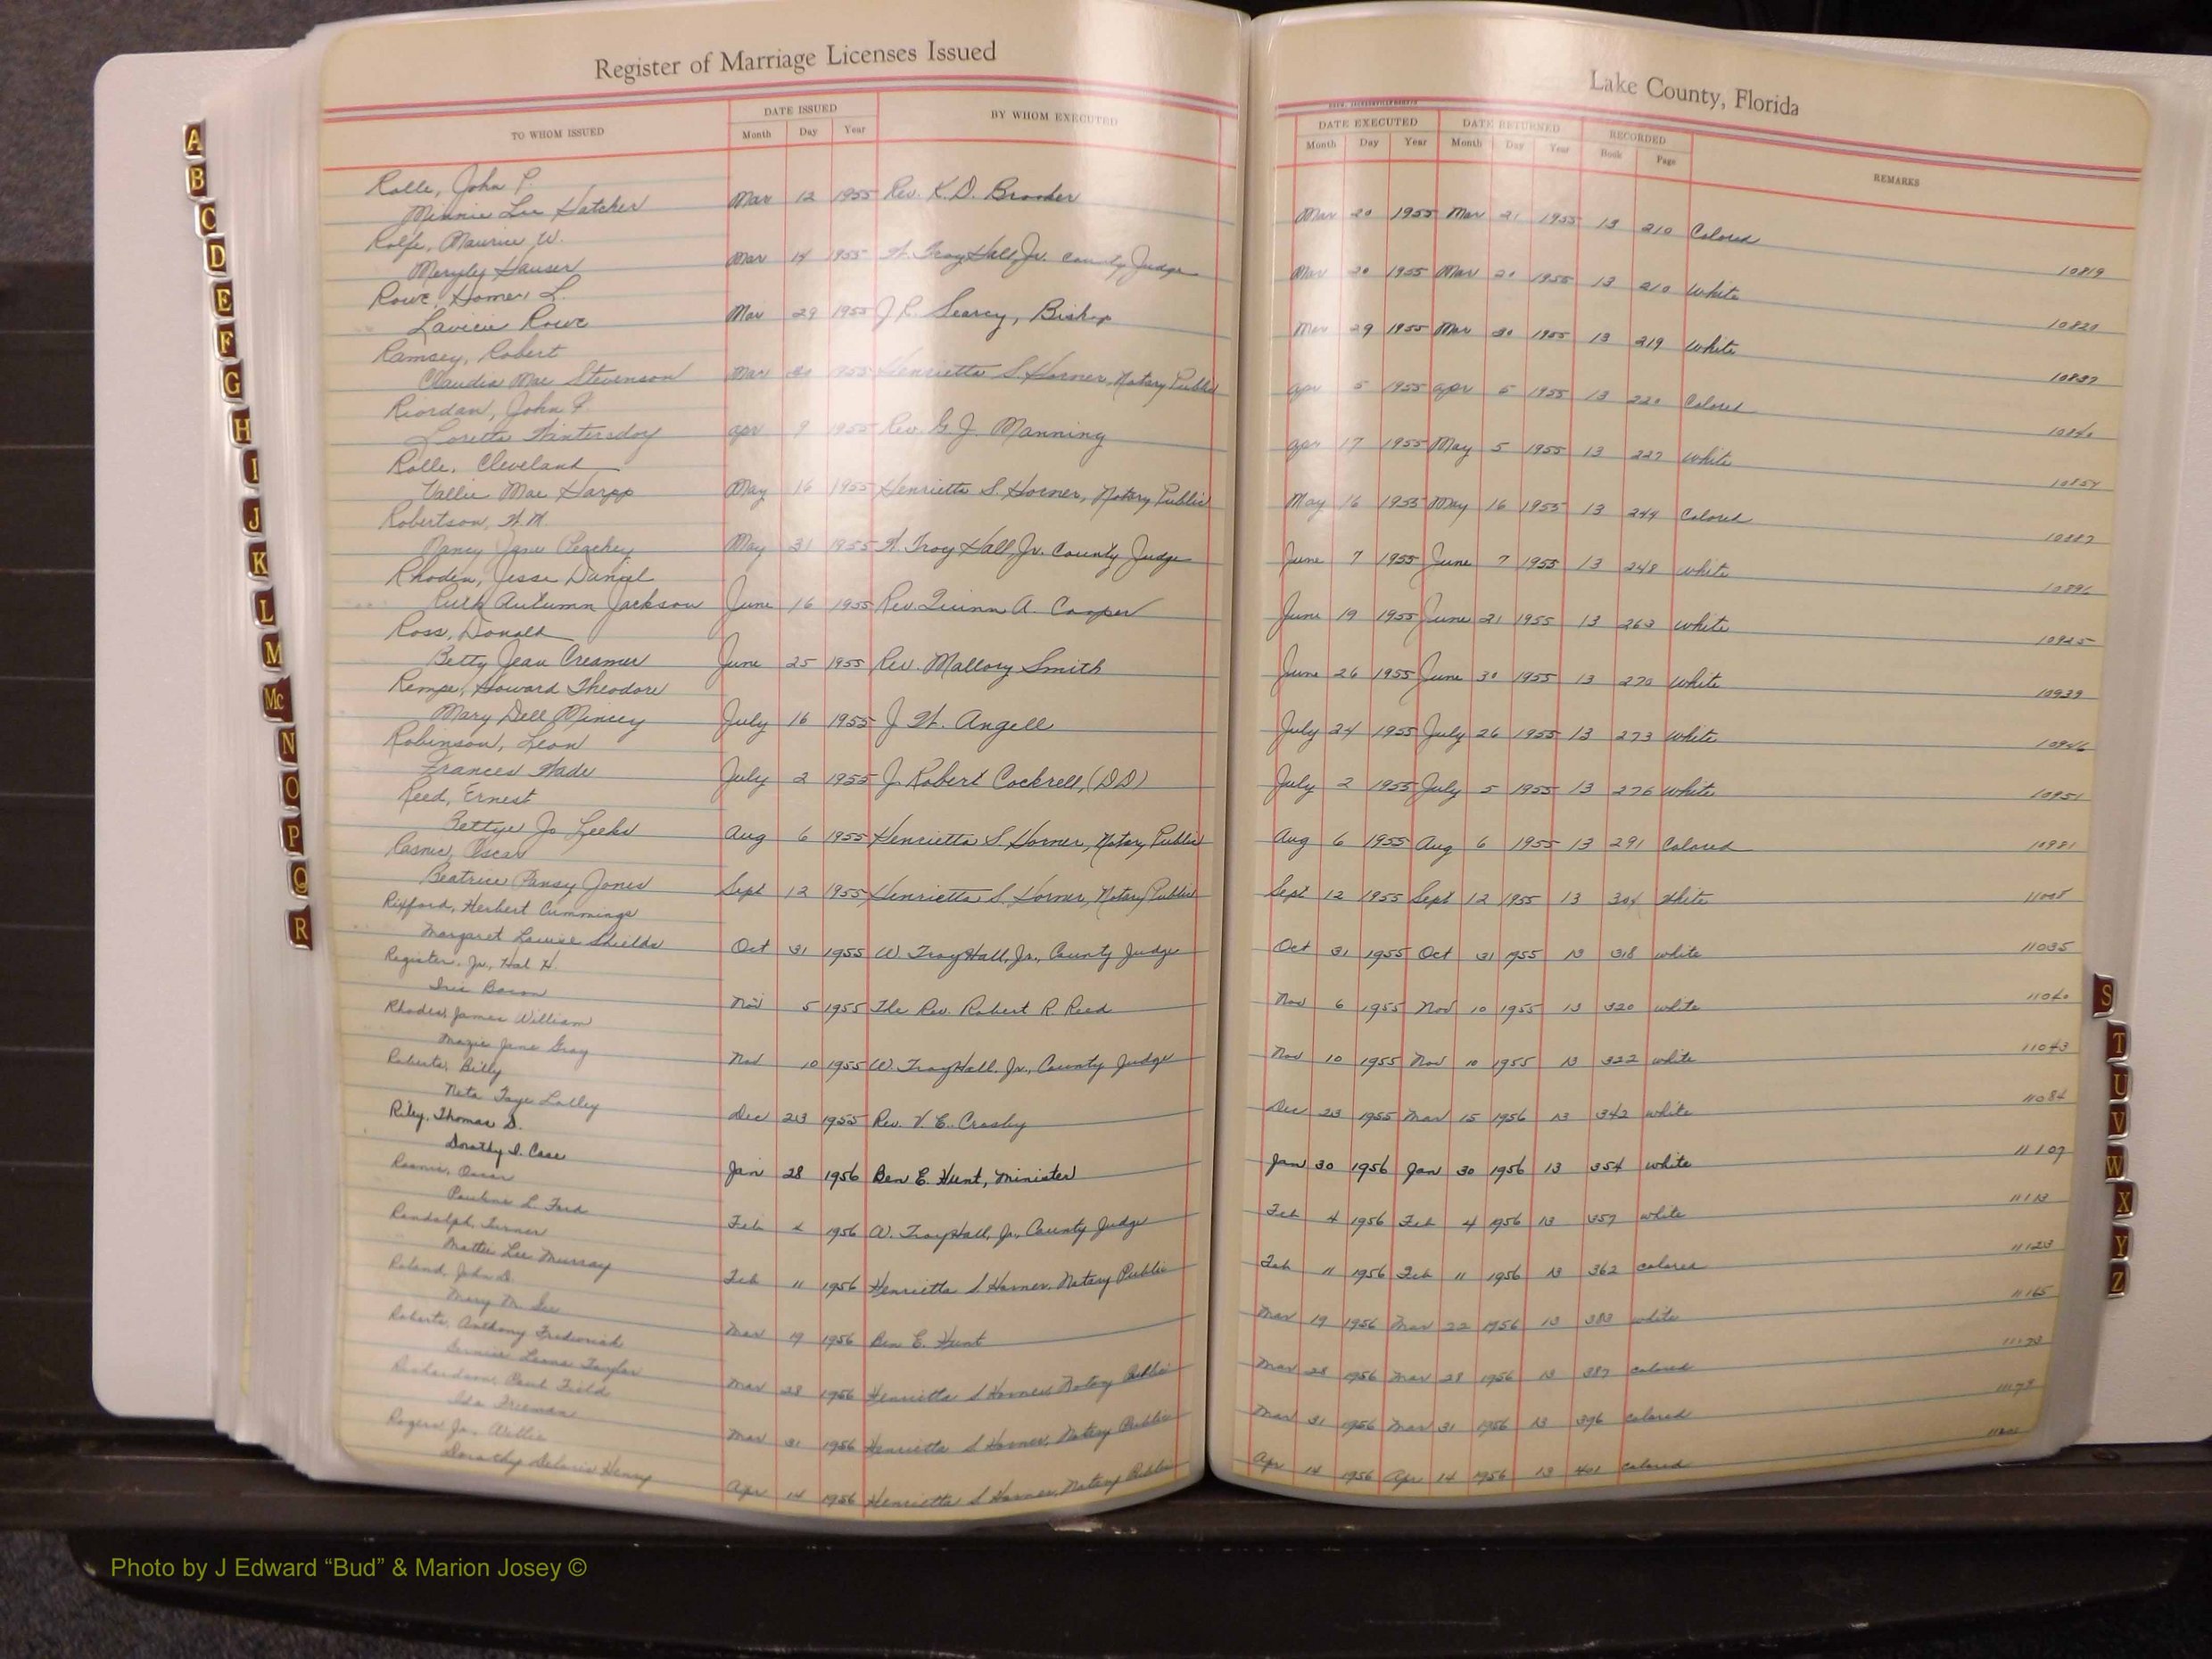 Register of Marriage Licenses Issued
Lake County, Florida
TO WHOM ISSUED DATE ISSUED BY WHOM EXECUTED DATE EXECUTED DATE RETURNED RECORDED REMARKS
Month Day Year Month Day Year Month Day Year Book Page
Rolle, John P.
Minnie Lee Hatcher Mar 12 1955 Rev. K.D. Mar 20 1955 Mar 21 1955 13 210 Colored 10819
Rolfe, Maurice W.
Hauser Mar 14 1955 W. Troy Hall, Jr. County Judge Mar 20 1955 Mar 21 1955 13 210 White 10820
Rowe, Homer L.
Rowe Mar 29 1955 J.R. Searcy, Bishop Mar 29 1955 Mar 30 1955 13 219 White
Ramsey, Robert
Claudia Mae Stevenson Mar 30 1955 Henrietta S. Horner, Notary Public Apr 5 1955 Apr 5 1955 13 220 Colored 10840
Riordan, John F.
Loretta Apr 9 1955 Rev. G.J. Manning Apr 17 1955 May 5 1955 13 227 White 10854
Rolle, Cleveland
Vallie Mae Harpp May 16 1955 Henrietta S. Horner, Notary Public May 16 1955 May 16 1955 13 244 Colored 10887
Robertson, W.M.
Nancy Jane Peachey May 31 1955 W. Troy Hall, Jr. County Judge June 7 1955 June 7 1955 13 248 White 10896
Rhoden, Jesse Daniel
Ruth Autumn Jackson June 16 1955 Rev. Quinn A. Cooper June 19 1955 June 21 1955 13 263 White 10925
Ross, Donald
Betty Jean Creamer June 25 1955 Rev. Mallory Smith June 26 1955 June 30 1955 13 270 White 10939
Rempe, Howard Theodore
Mary Dell Mincey July 16 1955 J. W. Angell July 24 1955 July 26 1955 13 273 White 10946
Robinson, Leon
Frances Wade July 2 1955 J. Robert Cockrell, (DD) July 2 1955 July 5 1955 13 276 White 10951
Reed, Ernest
Bettye Jo Leeks Aug 6 1955 Henrietta S. Horner, Notary Public Aug 6 1955 Aug 6 1955 13 291 Colored 10981
Oscar
Beatrice Pansy Jones Sept 12 1955 Henrietta S. Horner, Notary Public Sept 12 1955 Sept 12 1955 13 304 White 11008
Rixford, Herbert Cummings
Margaret Louise Shields Oct 31 1955 W. Troy Hall, Jr., County Judge Oct 31 1955 Oct 31 1955 13 318 white 11035
Register, Jr., Hal H.
Iris Bacon Nov 5 1955 The Rev. Robert R. Reed Nov 6 1955 Nov 10 1955 13 320 white 11040
Rhodes, James William
Mazie Jane Gray Nov 10 1955 W. Troy Hall, Jr., County Judge Nov 10 1955 Nov 10 1955 13 322 white 11043
Roberts, Billy
Neta Faye Lolley Dec 23 1955 Rev. V.E. Crosby Dec 23 1955 Mar 15 1956 13 342 white 11084
Riley, Thomas D.
Dorothy I. Case Jan 28 1956 Ben E. Hunt, Minister Jan 30 1956 Jan 30 1956 13 354 white 11107
Oscar
Pauline L. Ford Feb 4 1956 W. Troy Hall, Jr., County Judge Feb 4 1956 Feb 4 1956 13 357 white 11113
Randolph, Turner
Mattie Lee Murray Feb 11 1956 Henrietta S Horner, Notary Public Feb 11 1956 Feb 11 1956 13 362 colored 11123
Roland, John D.
Mary M. Mar 19 1956 Ben E. Hunt Mar 19 1956 Mar 22 1956 13 383 white 11165
Roberts, Anthony Frederick
Leona Taylor Mar 28 1956 Henrietta S Horner, Notary Public Mar 28 1956 Mar 28 1956 13 387 colored 11173
Richardson, Paul Field
Ida Freeman Mar 31 1956 Henrietta S Horner, Notary Public Mar 31 1956 Mar 31 1956 13 396 colored
Rogers Jr., Willie
Dorothy Deloris Henry Apr 14 1956 Henrietta S Horner, Notary Public Apr 14 1956 Apr 14 1956 13 401 colored
A
B
C
D
E
F
G
H
I
J
K
L
M
Mc
N
O
P
Q
R
S
T
U
V
W
X
Y
Z
Photo by J Edward “Bud” & Marion Josey ©